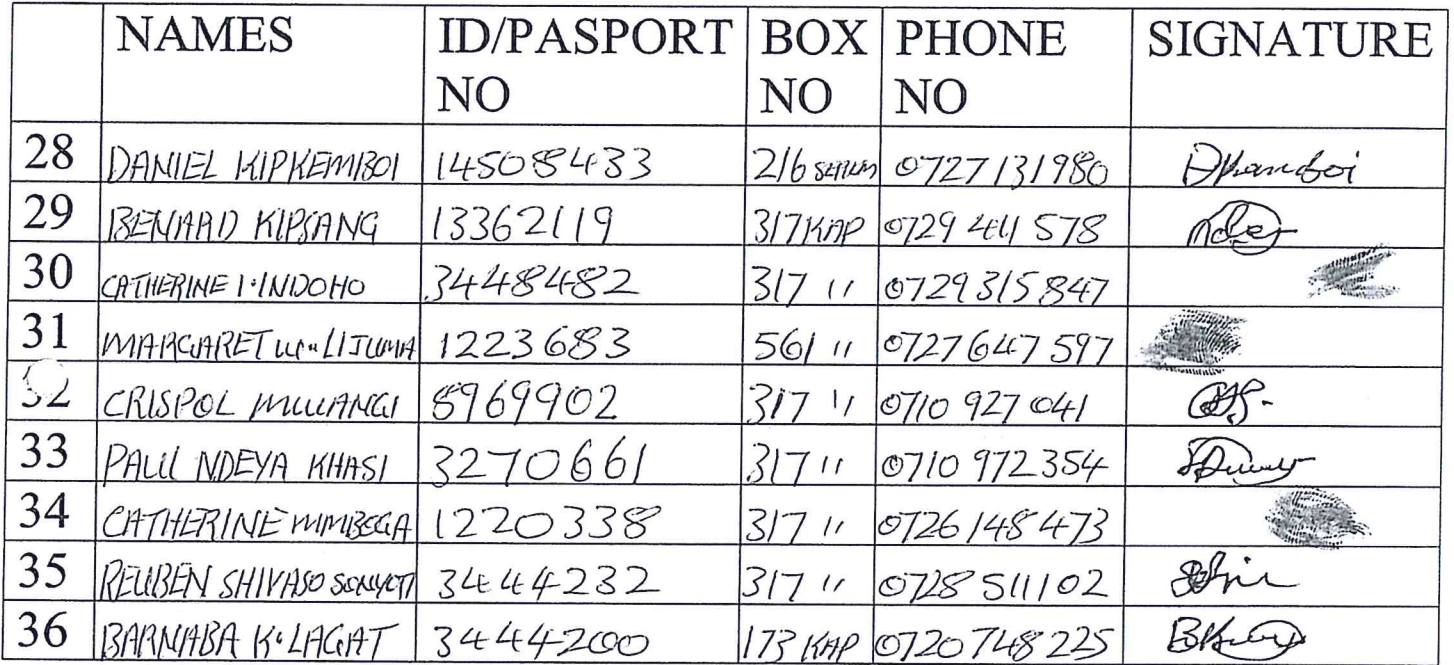 NAMES ID/PASPORT NO BOX NO PHONE NO SIGNATURE
28 DANIEL KIPKEMBOI 14508433 216 0727131980
29 BENARD KIPSANG 13362119 317 KAP 0729 441 578
30 CATHERINE I. INDOHO 3448482 317 " 0729315847
31 MARGARET LIJUMA 1223683 561 " 0727647597
32 CRISPOL MWANGI 8969902 317 " 0710 927 041
33 PAUL NDEYA KHASI 3270661 317 " 0710 972354
34 CATHERINE MMBOGA 1220338 317 " 0726148473
35 REUBEN SHIVASO 3444232 317 " 0728 511102
36 BARNABA K. LAGAT 3444200 173 KAP 0720748225